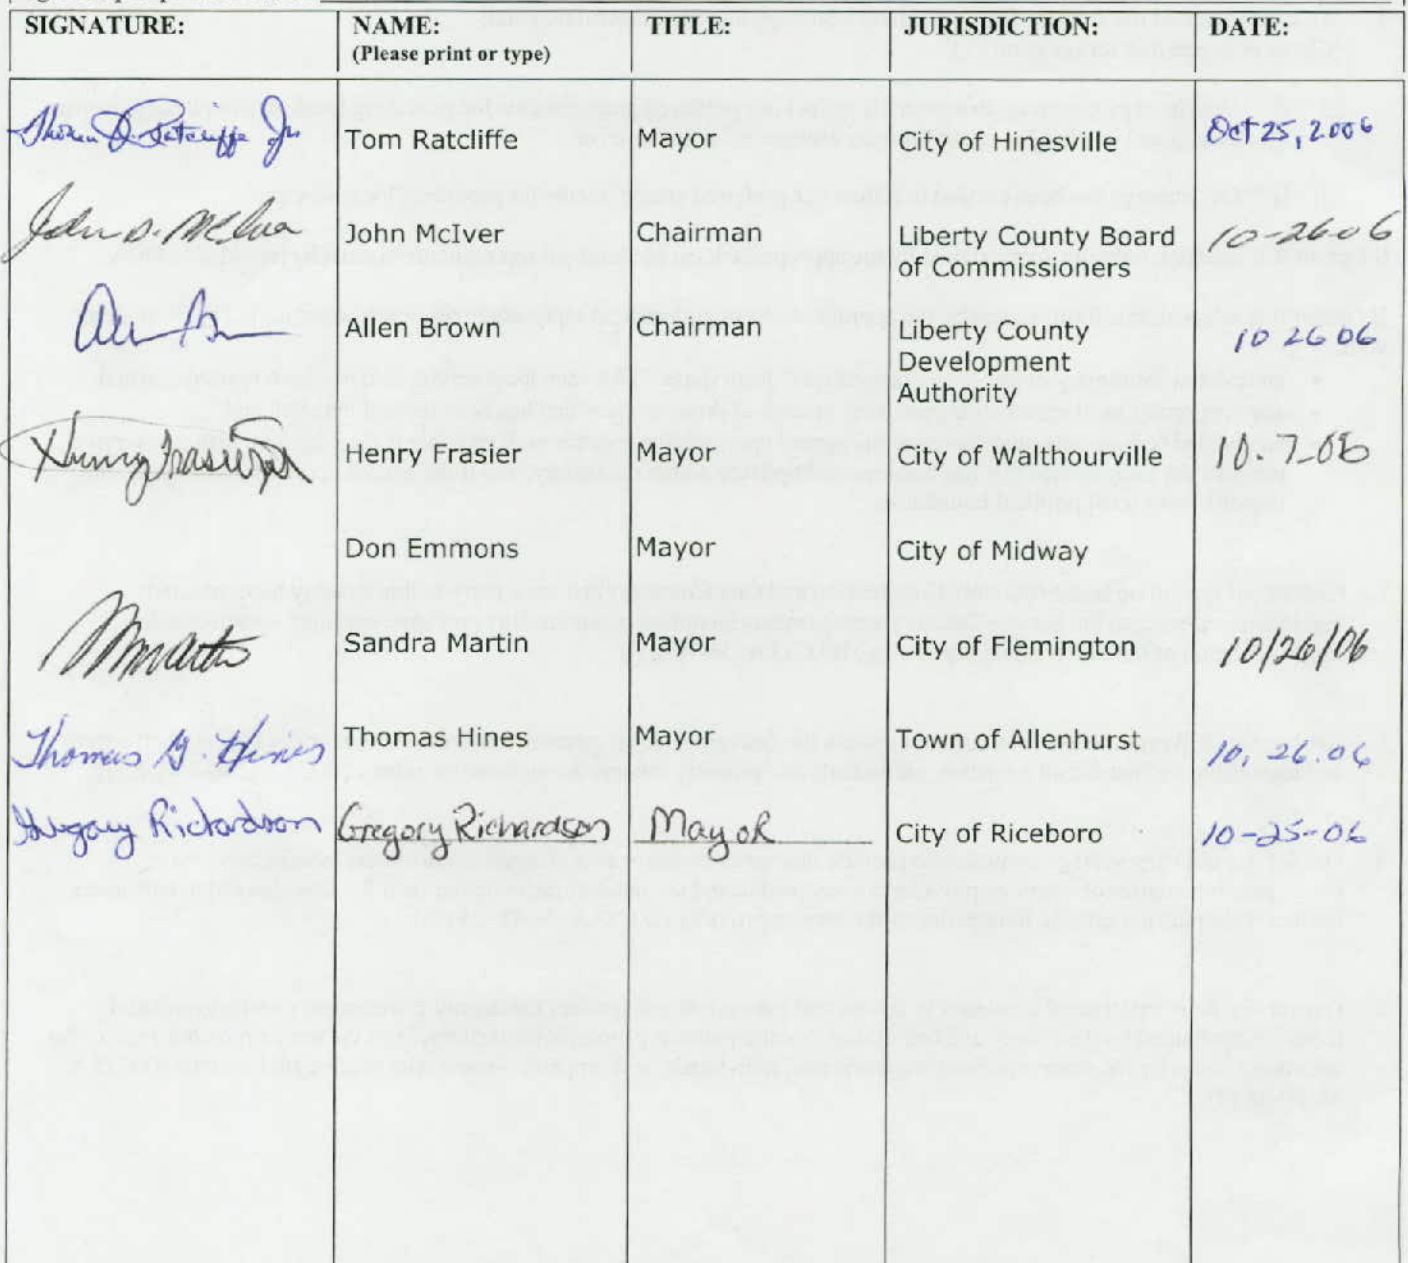 SIGNATURE: NAME: TITLE: JURISDICTION: DATE:
(Please print or type)
Thomas J. Ratcliffe Jr Tom Ratcliffe Mayor City of Hinesville Oct 25, 2006
John D. McIver John McIver Chairman Liberty County Board 10-26-06
of Commissioners
Allen Brown Chairman Liberty County 10 26 06
Development
Authority
Henry Frasier Henry Frasier Mayor City of Walthourville 10-7-06
Don Emmons Mayor City of Midway
Sandra Martin Mayor City of Flemington 10/26/06
Thomas G. Hines Thomas Hines Mayor Town of Allenhurst 10.26.06
Gregory Richardson Gregory Richardson Mayor City of Riceboro 10-25-06